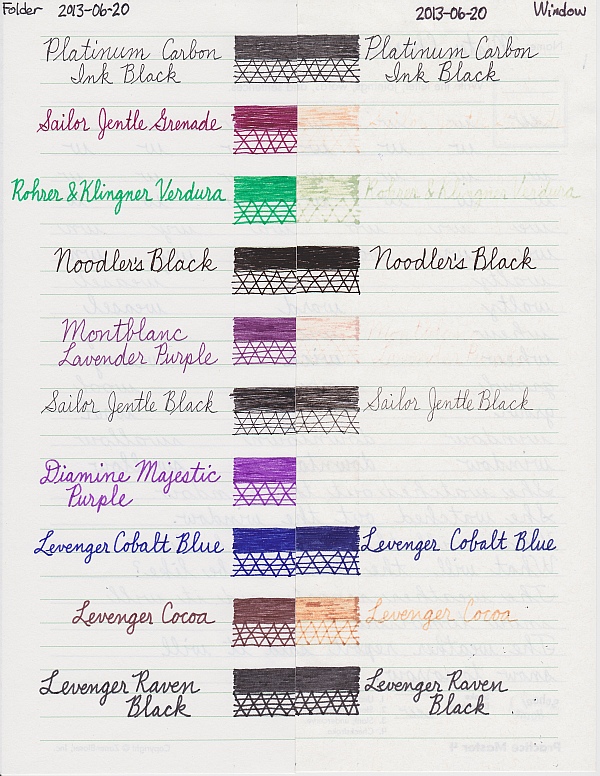 Folder 2013-06-20 2013-06-20 Window
Platinum Carbon Ink Black Platinum Carbon Ink Black
Sailor Jentle Grenade
Rohrer & Klingner Verdura Rohrer & Klingner Verdura
Noodler's Black Noodler's Black
Montblanc Lavender Purple
Sailor Jentle Black Sailor Jentle Black
Diamine Majestic Purple
Levenger Cobalt Blue Levenger Cobalt Blue
Levenger Cocoa Levenger Cocoa
Levenger Raven Black Levenger Raven Black